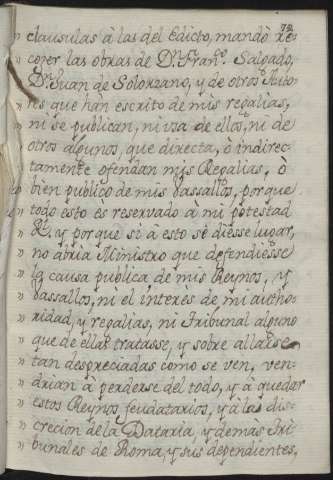 72
" clausulas à las del Edicto, mandò re-
" cojer las obras de Dn. Franco. Salgado,
" Dn. Juan de Solorzano, y de otros Auto-
" res que han escrito de mis regalias,
" ni se publican, ni usa de ellos, ni de
" otros algunos, que directa, ò indirec-
" tamente ofendan mis Regalias, ò
" bien publico de mis vassallos, porque
" todo esto ès reservado a mi potestad
" Rl. y porque si à esto se diesse lugar,
" no abria Ministro que defendiesse
" la causa publica de mis Reynos, y
" vassallos, ni el interès de mi autho-
" ridad, y regalias, ni Tribunal alguno
" que de ellas tratasse, y sobre allarse
" tan despreciadas como se ven, ven-
" drian à perderse del todo, y à quedar
" estos Reynos feudatarios, y à la dis-
" crecion de la Dataria, y demas Tri-
" bunales de Roma, y sus dependientes,